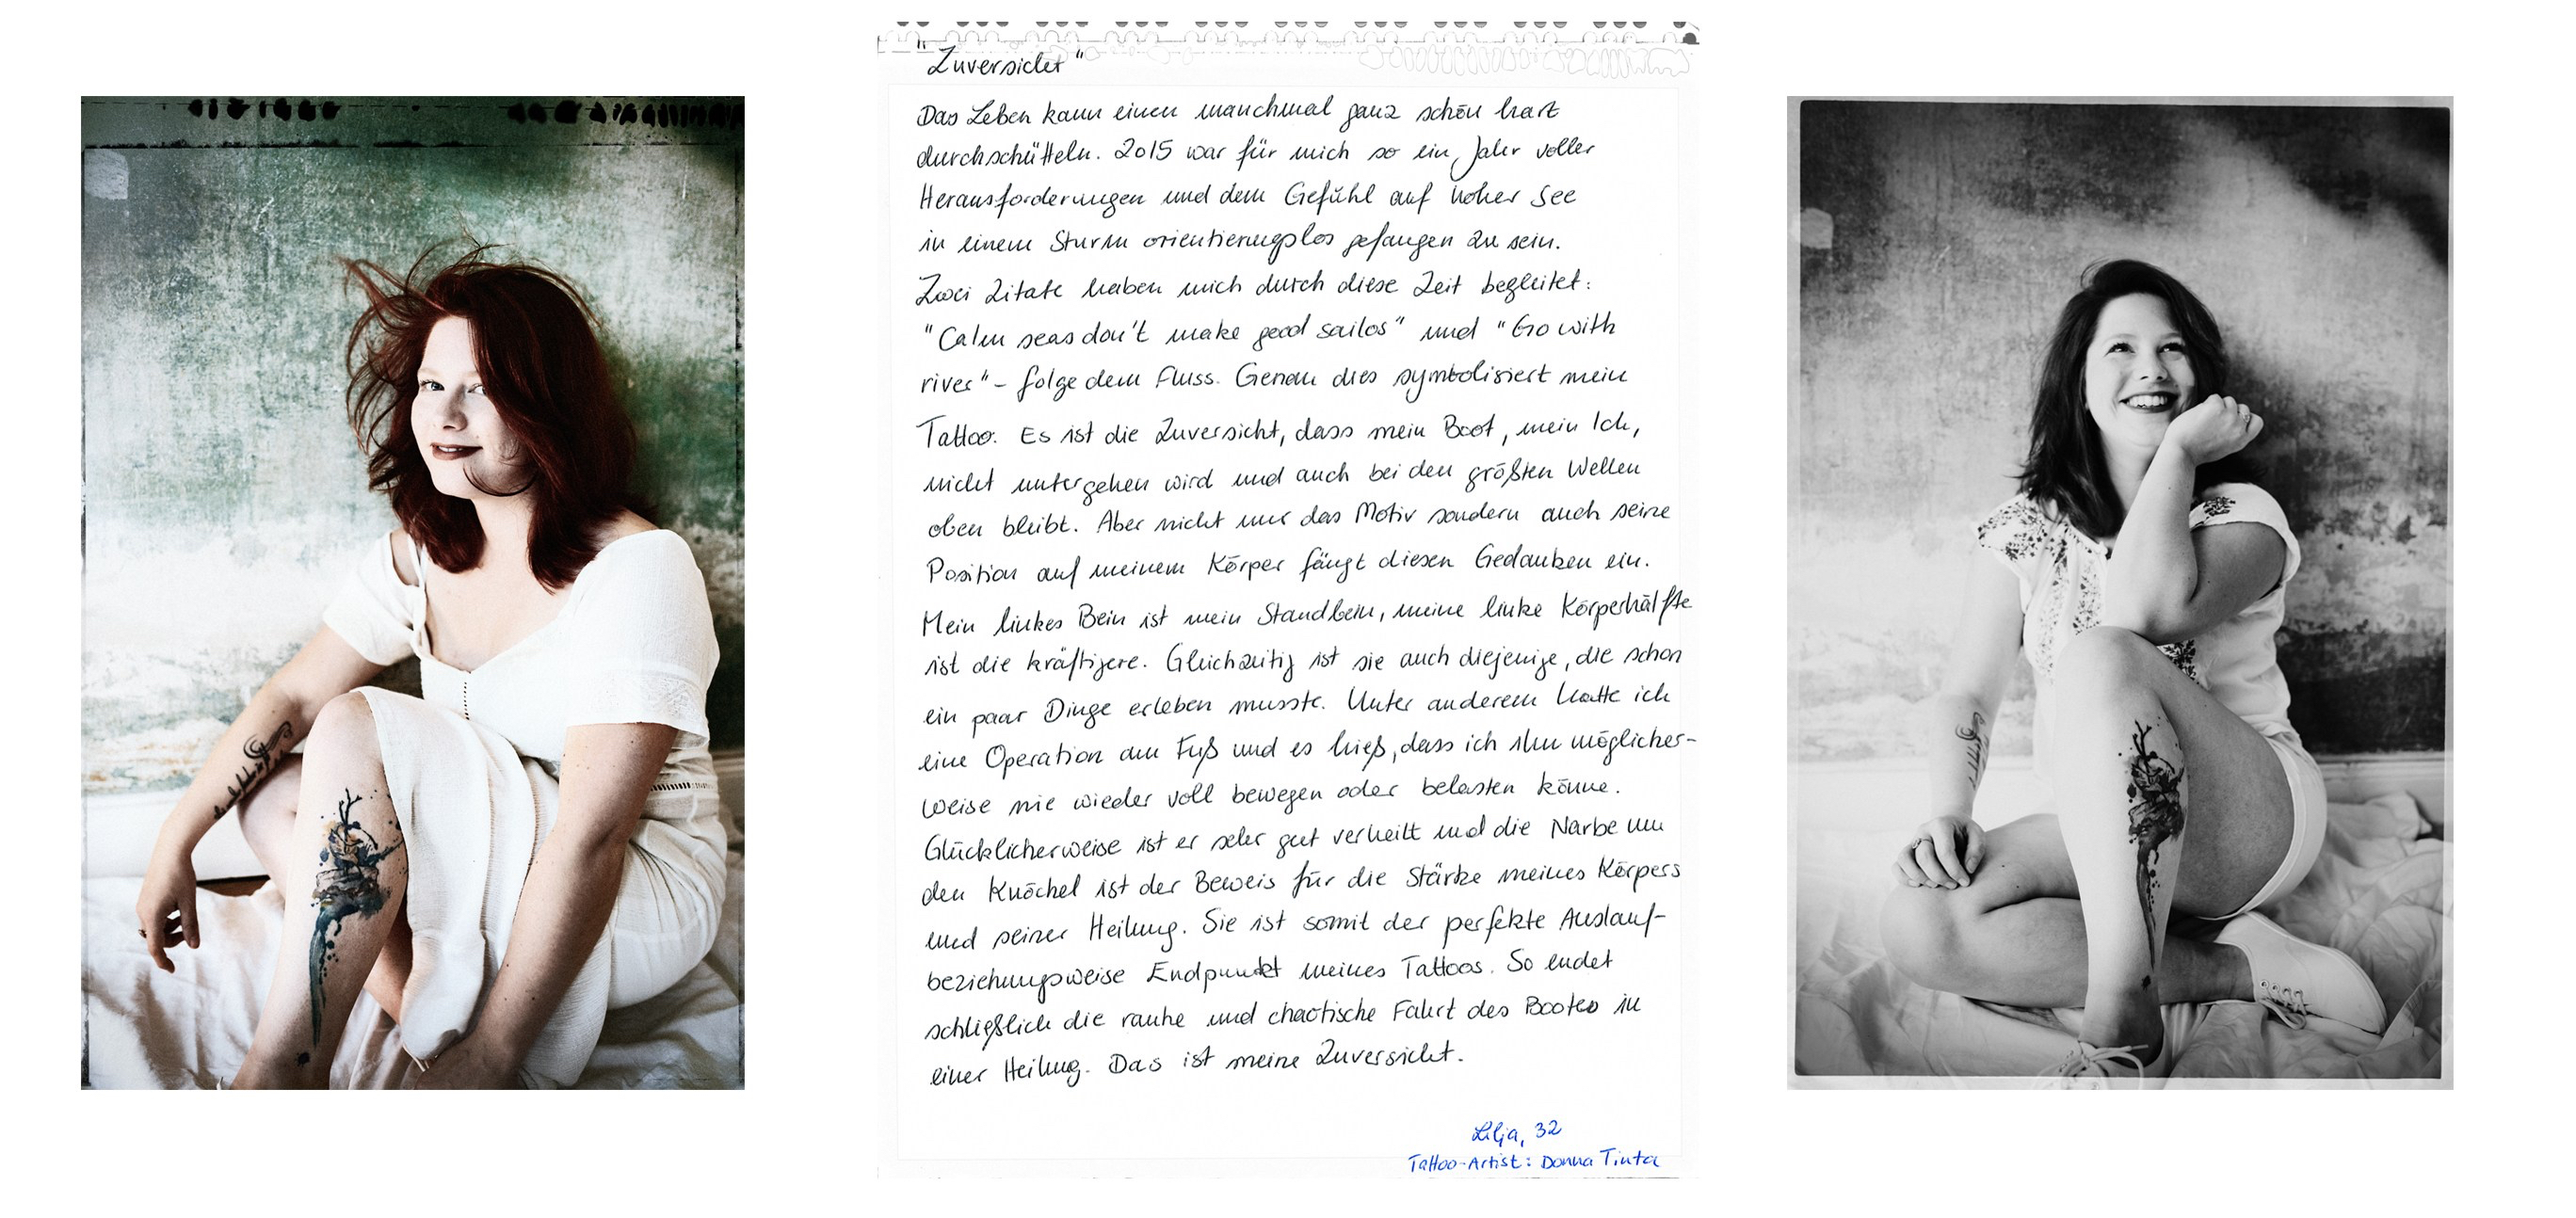 "Zuversicht"
Das Leben kann einen manchmal ganz schön hart
durchschütteln. 2015 war für mich so ein Jahr voller
Herausforderungen und dem Gefühl auf hoher See
in einem Sturm orientierungslos gefangen zu sein.
Zwei Zitate haben mich durch diese Zeit begleitet:
"Calm seas don't make good sailos" und "Go with
river" - folge dem Fluss. Genau dies symbolisiert mein
Tattoo. Es ist die Zuversicht, dass mein Boot, mein Ich,
nicht untergehen wird und auch bei den größten Wellen
oben bleibt. Aber nicht nur das Motiv sondern auch seine
Position auf meinem Körper fängt diesen Gedanken ein.
Mein linkes Bein ist mein Standbein, meine linke Körperhälfte
ist die kräftigere. Gleichzeitig ist sie auch diejenige, die schon
ein paar Dinge erleben musste. Unter anderem hatte ich
eine Operation am Fuß und es hieß, dass ich ihn möglicher-
weise nie wieder voll bewegen oder belasten könne.
Glücklicherweise ist er sehr gut verheilt und die Narbe um
den Knöchel ist der Beweis für die Stärke meines Körpers
und seiner Heilung. Sie ist somit der perfekte Auslauf-
beziehungsweise Endpunkt meines Tattoos. So endet
schließlich die rauhe und chaotische Fahrt des Bootes in
einer Heilung. Das ist meine Zuversicht.
Lilja, 32
Tattoo-Artist: Donna Tinta